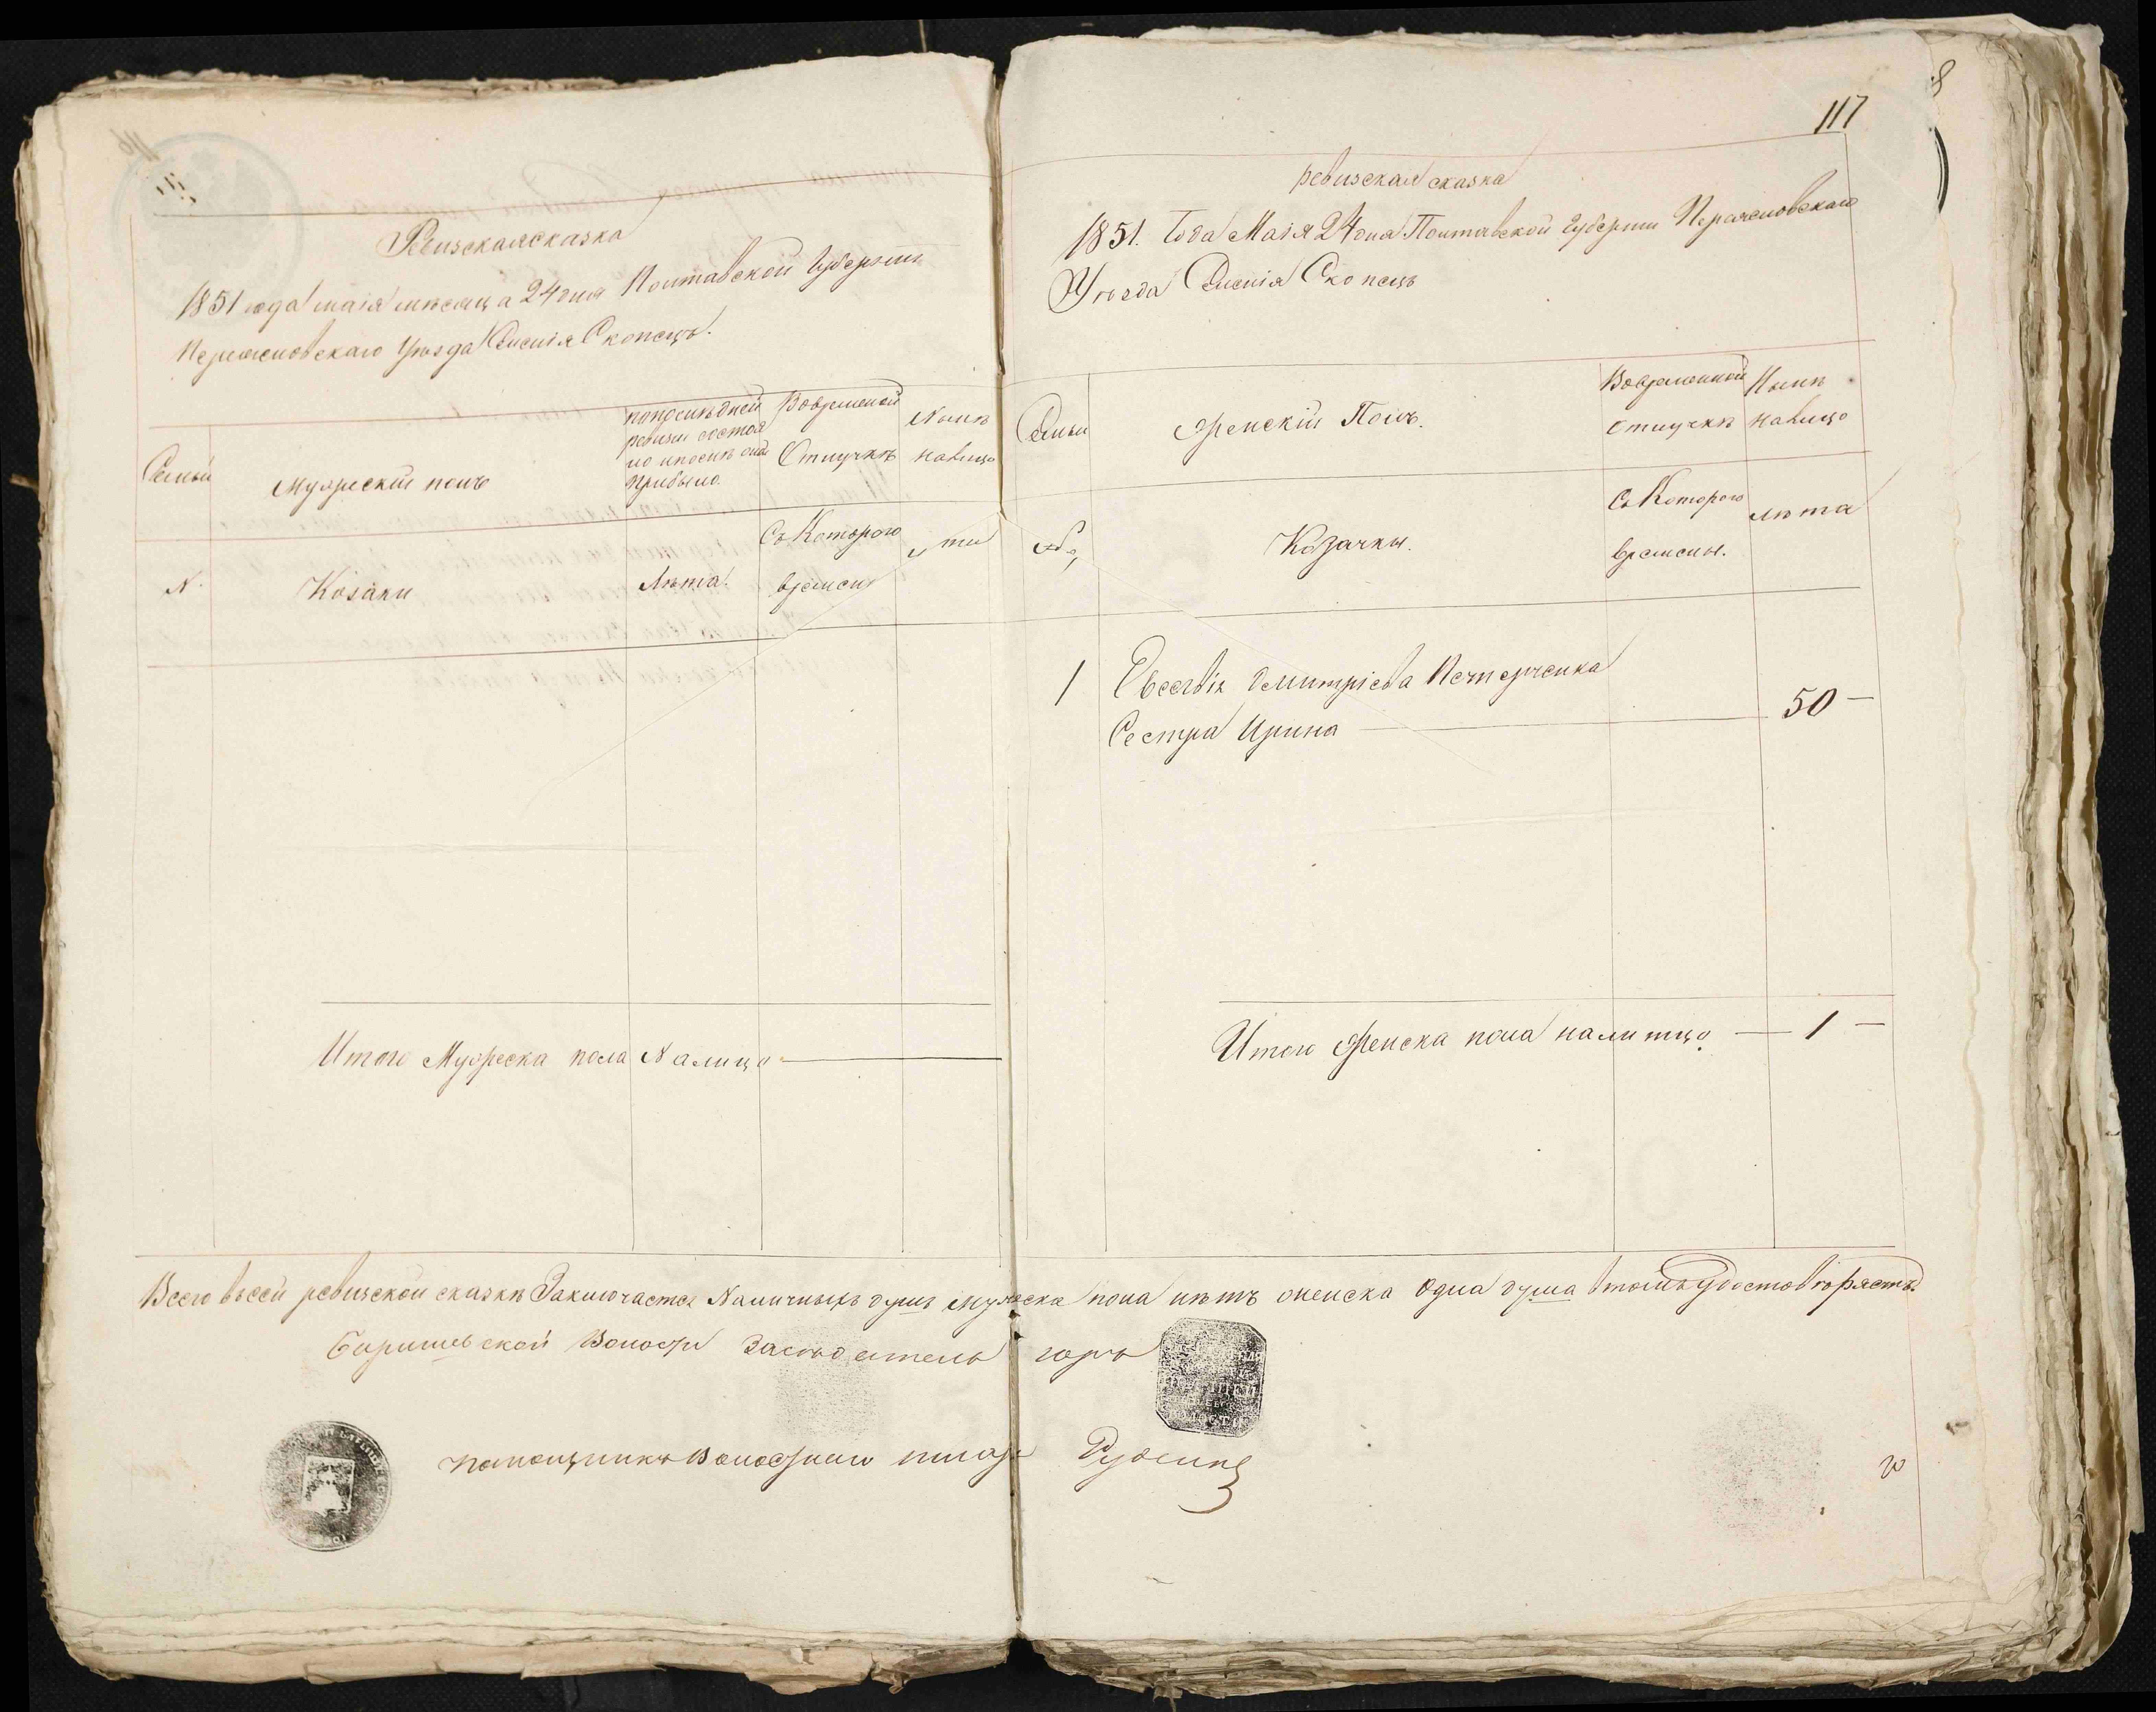 Ревизская сказка
1851 года маія мѣсяца 24 дня Полтавской Губерніи
Переяславскаго Уѣзда Скопецъ.
Семьи
Мужескій полъ
попоследней ревизіи состояло ипослѣ оной прибыло.
Вовременой Отлучкѣ
Нынѣ налицо
№
Козаки
Лѣта.
Съ Котораго времени
Итого Мужеска пола Налицо
117
ревизская сказка
1851. Года Маія 24 дня Полтавской Губерніи Переяславскаго
Уѣзда Скопецъ
Семьи
Женскій Полъ.
Вовременной отлучкѣ
Нынѣ налицо
Козачки.
Съ Котораго времены.
лѣта
1
Димитріева
Сестра Ирина
50
Итого Женска пола налитцо 1
Всего высей ревизской сказкѣ Заключается Наличныхъ душъ мужеска пола нѣтъ женска одна душа втомъ удостовѣряетъ
Баришевской Волости Заседатель
помощникъ Волостнаго писаря